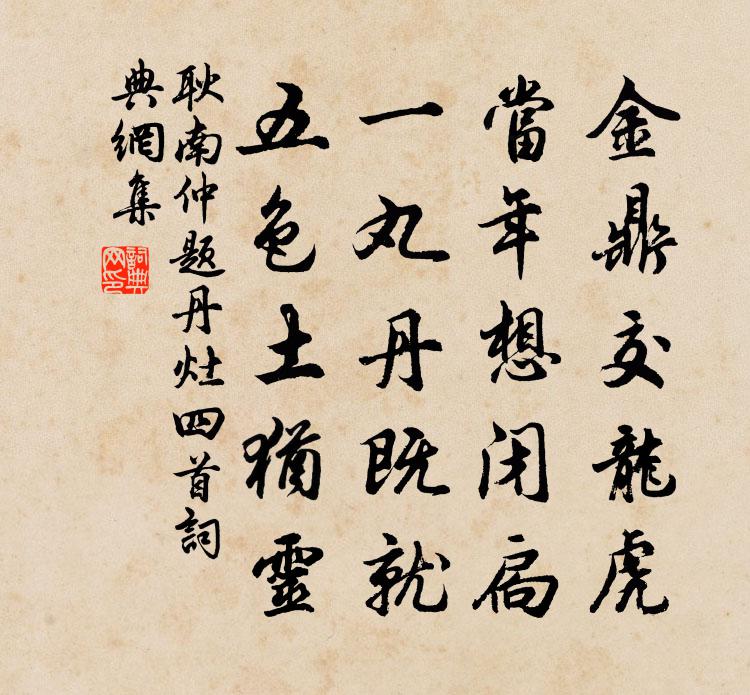 金鼎交龍虎
當年想閉扃
一丸丹既就
五色土猶靈
耿南仲題丹灶四首詞
典網集
詞典
网印